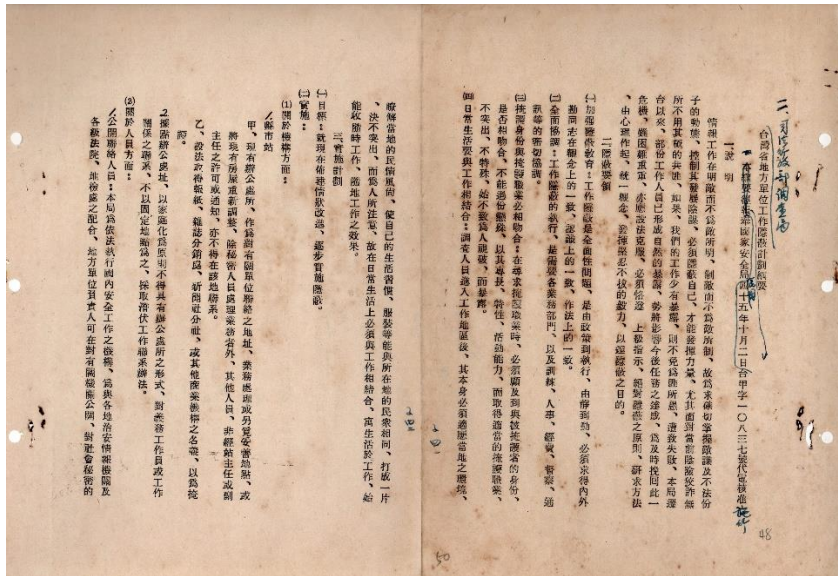 二、司法行政部調查局
台灣省地方單位工作隱蔽計劃綱要
本綱要奉國家安全局四十五年十月二日台甲字一〇八三七號代電核准施行
一、說明
情報工作在明敵而不為敵所明、制敵而不為敵所制、故為求確切掌握敵諜及不法份
子的動態、控制其發展陰謀、必須隱蔽自己、才能發揮力量。尤其面對當前陰險狡詐無
所不用其極的共匪、如果、我們的工作少有暴露、則不免為匪所悉、遭致失敗、本局遷
台以來、部份工作人員已形成自然的暴露、勢將影響今後任務之達成、為及時挽回此一
危機、雖困難重重、亦應設法克服、必須恪遵 上級指示、絕對隱蔽之原則、研求方法
、由心理作起、統一觀念、發揮堅忍不拔的毅力、以達隱蔽之目的。
二、隱蔽要領
(一)加強隱蔽教育：工作隱蔽是全面性問題、是由政策到執行、由靜到動、必須求得內外
勤同志在觀念上的一致、認識上的一致、作法上的一致。
(二)全面協調：工作隱蔽的執行、是需要各業務部門、以及訓練、人事、經費、督察、通
訊等的密切協調。
(三)掩護身份與掩護職業必相吻合：在尋求掩護職業時、必須顧及到與被掩護者的身份、
是否相吻合、不能過份懸殊、以其專長、特性、活動能力、而取得適當的掩護職業、
不突出、不特殊、始不致為人識破、而暴露。
(四)日常生活要與工作相結合：調查人員進入工作地區後、其本身必須適應當地之環境、
48
瞭解當地的民情風俗、使自己的生活習慣、服裝等能與所在地的民眾相同、打成一片
、決不突出、而為人所注意、故在日常生活上必須與工作相結合、寓生活於工作、始
能收隨時工作、隨地工作之效果。
三、實施計劃
(一)目標：就現在佈建情狀改進、逐步實施隱蔽。
(二)實施：
(1)關於機構方面：
1.縣市站
甲、現有辦公處所、作為對有關單位聯絡之地址、業務處理或另覓妥當地點、或
將現有房屋重新調整、除秘密人員處理業務者外、其他人員、非經站主任或副
主任之許可或通知、亦不得在該地聯系。
乙、設法取得報紙、雜誌分銷處、新聞社分社、或其他商業機構之名義、以為掩
護。
2.據點辦公處址、以家庭化為原則不得具有辦公處所之形式、對義務工作員或工作
關係之聯系、不以固定地點為之、採取潛伏工作聯系辦法。
(2)關於人員方面：
1.公開聯絡人員：本局為依法執行國內安全工作之機構、為與各地治安情報機關及
各級法院、地檢處之配合、地方單位負責人可在對有關機關公開、對社會秘密的
50